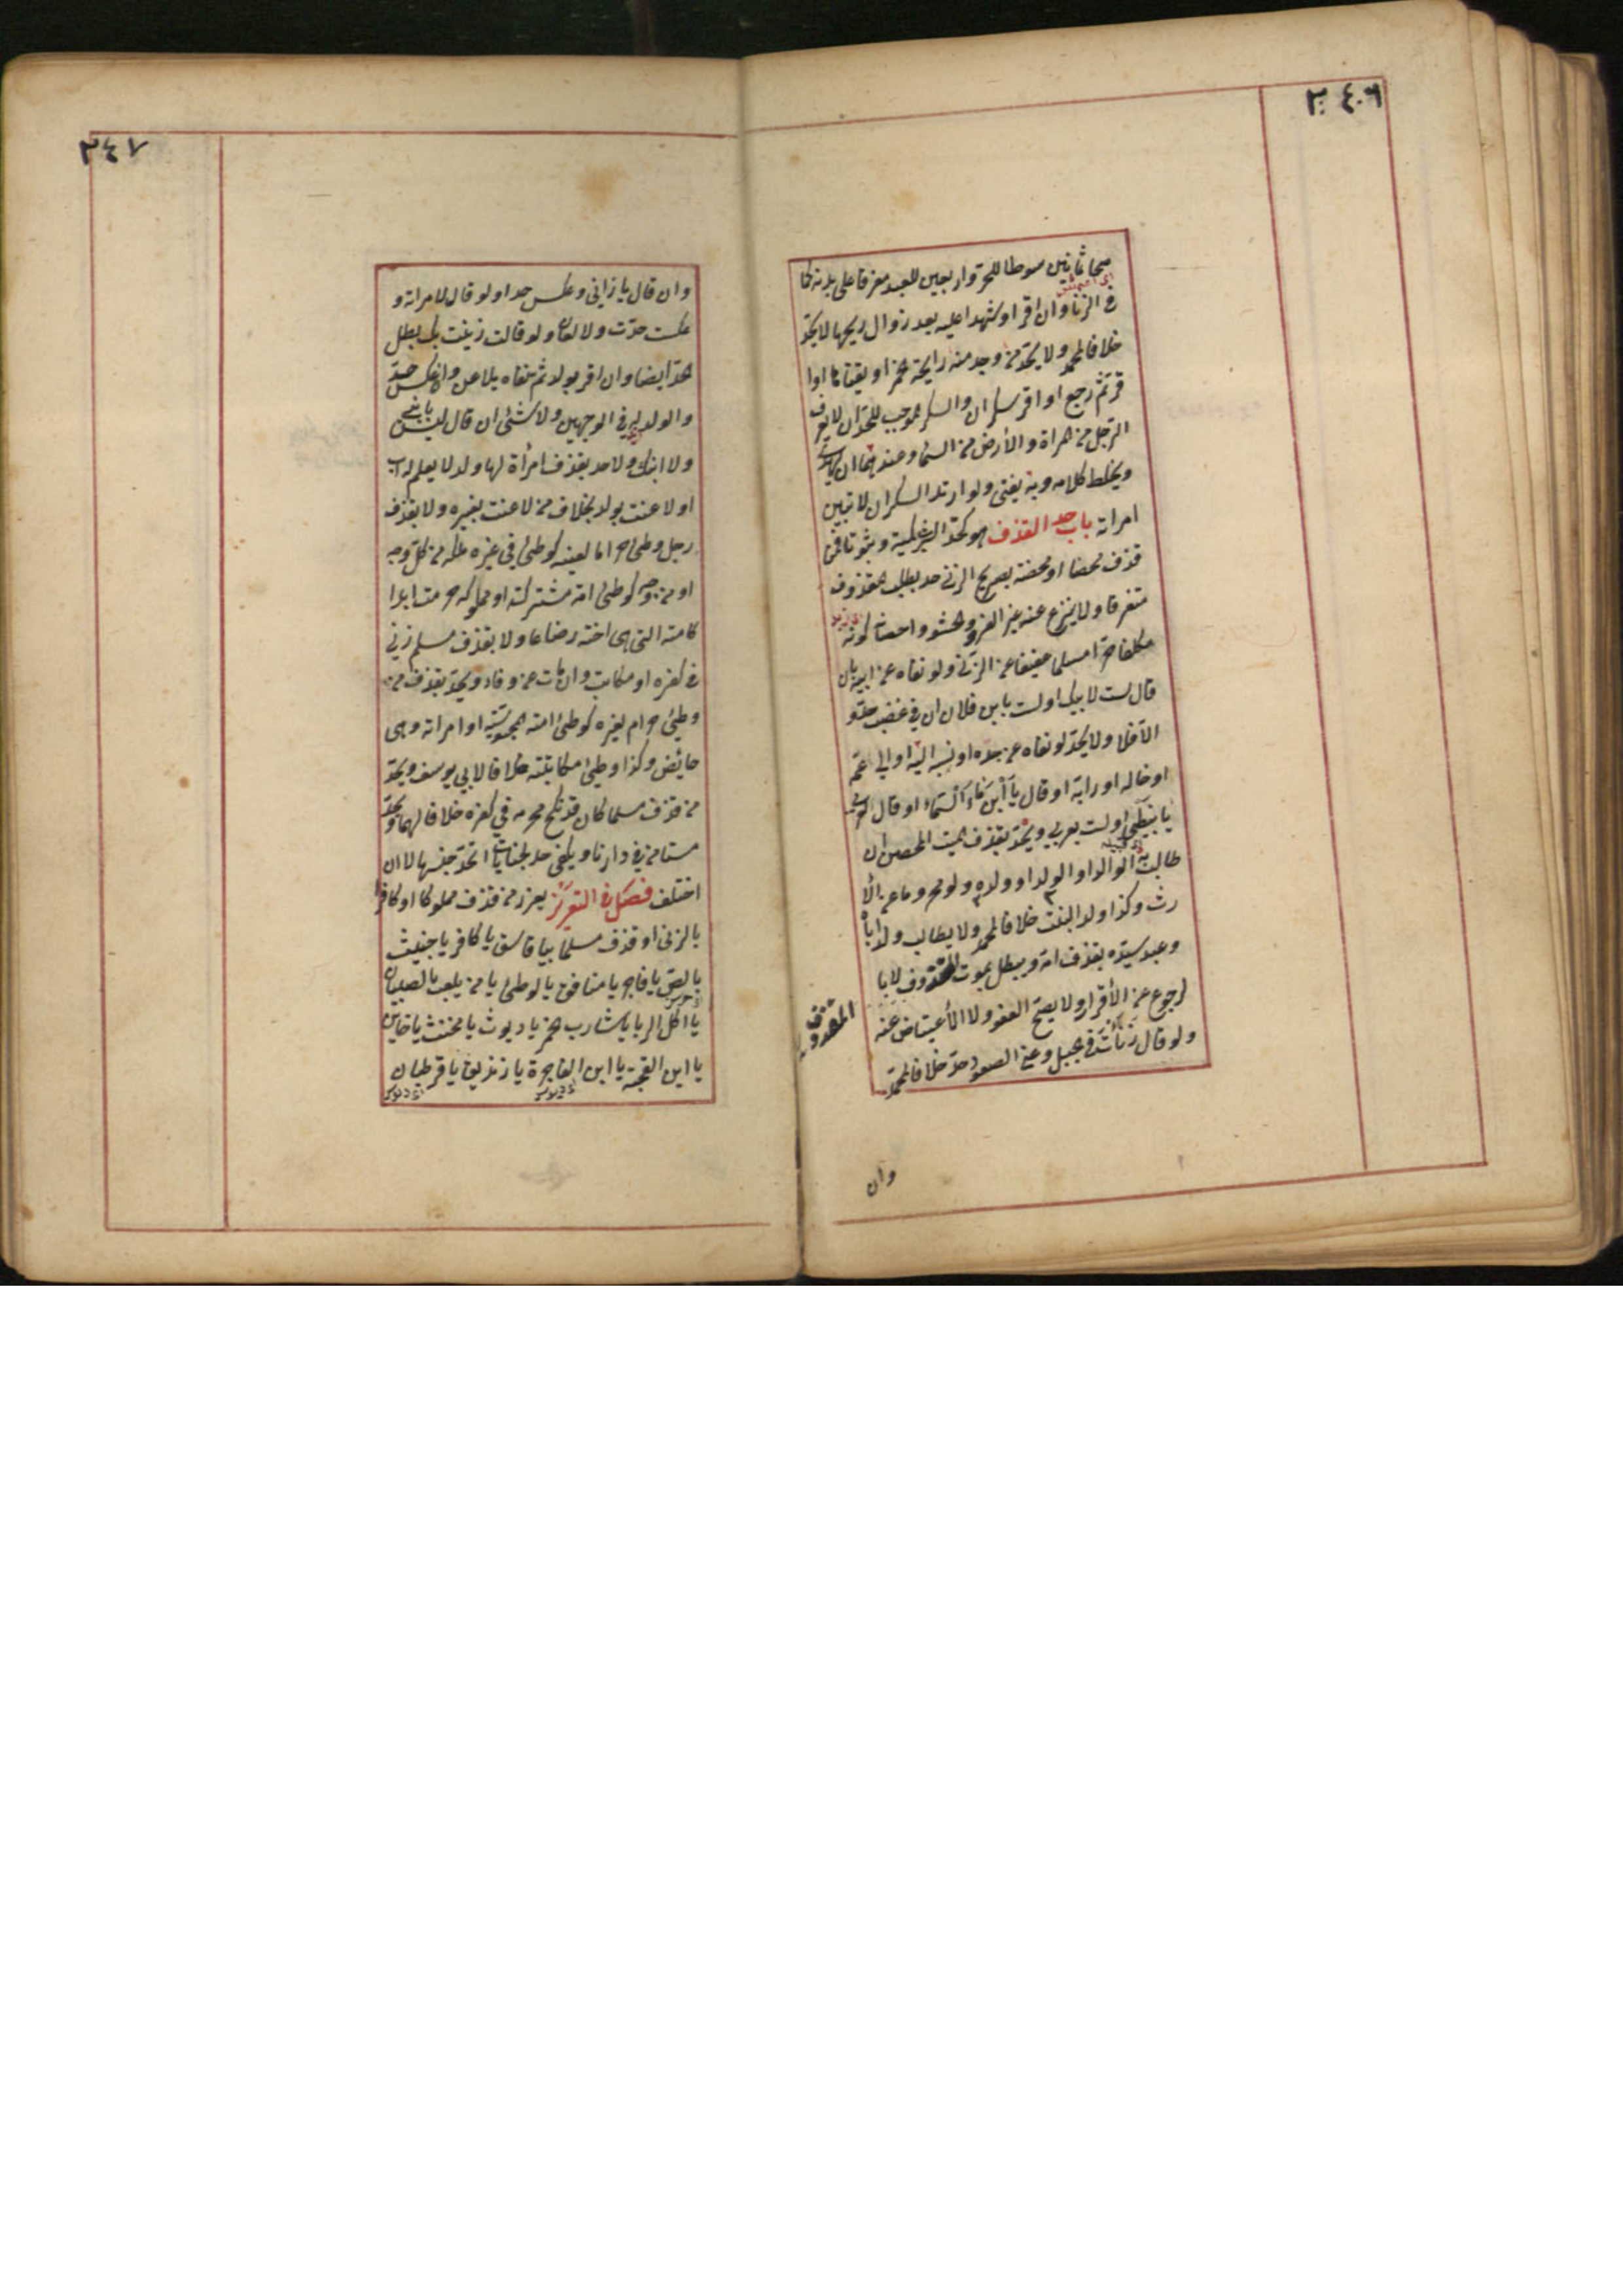 ٣٤٠٦
صحا ثمانين سوطا للحر واربعين للعبد مفرقا على بدنه كما
في الزنا وان اقر او شهدا عليه بعد زوال ريحها لا يحد
خلافا لمحمد ولا يحد من وجد منه رايحة الخمر او تقياها او ا
قر ثم رجع او اقر سكران والسكر الموجب للحد ان لا يعرف
الرجل من المراة والأرض من السماء وعندهما ان يهذي
ويخلط كلامه وبه يفتى ولو ارتد السكران لا تبين
امراته باب حد القذف هو كحد الشرب كمية وثبوتا فمن
قذف محصنا او محصنة بصريح الزنى حد بطلب المقذوف
متفرقا ولا ينزع عنه غير الفرو والحشو واحصانه كونه
مكلفا حرا مسلما عفيفا عن الزنى ولو نفاه عن ابيه بان
قال لست لابيك او لست بابن فلان ان في غضب حد و
الا فلا ولا يحد لو نفاه عن جده او نسبه اليه او الى عمه
او خاله او رابه او قال يا ابن ماء السماء او قال لعربي
يا نبطي او لست بعربي ويحد بقذف الميت المحصن ان
طالب به الوالد او الولد او ولده ولو محروما عن الأ
رث وكذا ولد البنت خلافا لمحمد ولا يطالب ولد اباه
وعبد سيده بقذف امه ويبطل بموت المقذوف لا با
لرجوع عن الأقرار ولا يصح العفو ولا الأعتياض عنه
ولو قال زنأت في الجبل وعنى الصعود حد خلافا لمحمد
المقذوف
وان
٣٤٧
وان قال يا زاني وعكس حدا ولو قال لامراته و
عكست حدت ولا لعان ولو قالت زنيت بك بطل
الحد ايضا وان اقر بولد ثم نفاه يلاعن وان عكس حد
والولد له في الوجهين ولا شئ ان قال ليس بابني
ولا ابنك ولا حد بقذف امرأة لها ولد لا يعلم له اب
او لاعنت بولد بخلاف من لاعنت بغيره ولا بقذف
رجل وطئ حراما لعينه كوطئ في غير ملكه من كل وجه
او من وجه كوطئ امة مشتركة او مملوكة حرمت ابدا
كامته التي هي اخته رضاعا ولا بقذف مسلم زنى
في كفره او مكاتب وان مات عن وفاء ويحد بقذف من
وطئ حرام لغيره كوطئ امته المجوسية او امراته وهي
حائض وكذا وطئ مكاتبته خلافا لابي يوسف ويحد
من قذف مسلما كان قد نكح محرمه في كفره خلافا لهما ويحد
مستامن في دارنا ويكفي حد لجنايات اتحد جنسها لا ان
اختلف فصل في التعزير يعزر من قذف مملوكا او كافرا
بالزنى او قذف مسلما بيا فاسق يا كافر يا خبيث
يا لص يا فاجر يا منافق يا لوطئ يا من يلعب بالصبيان
يا اكل الربا يا شارب الخمر يا ديوث يا مخنث يا خاين
يا ابن القحبة يا ابن الفاجرة يا زنديق يا قرطبان